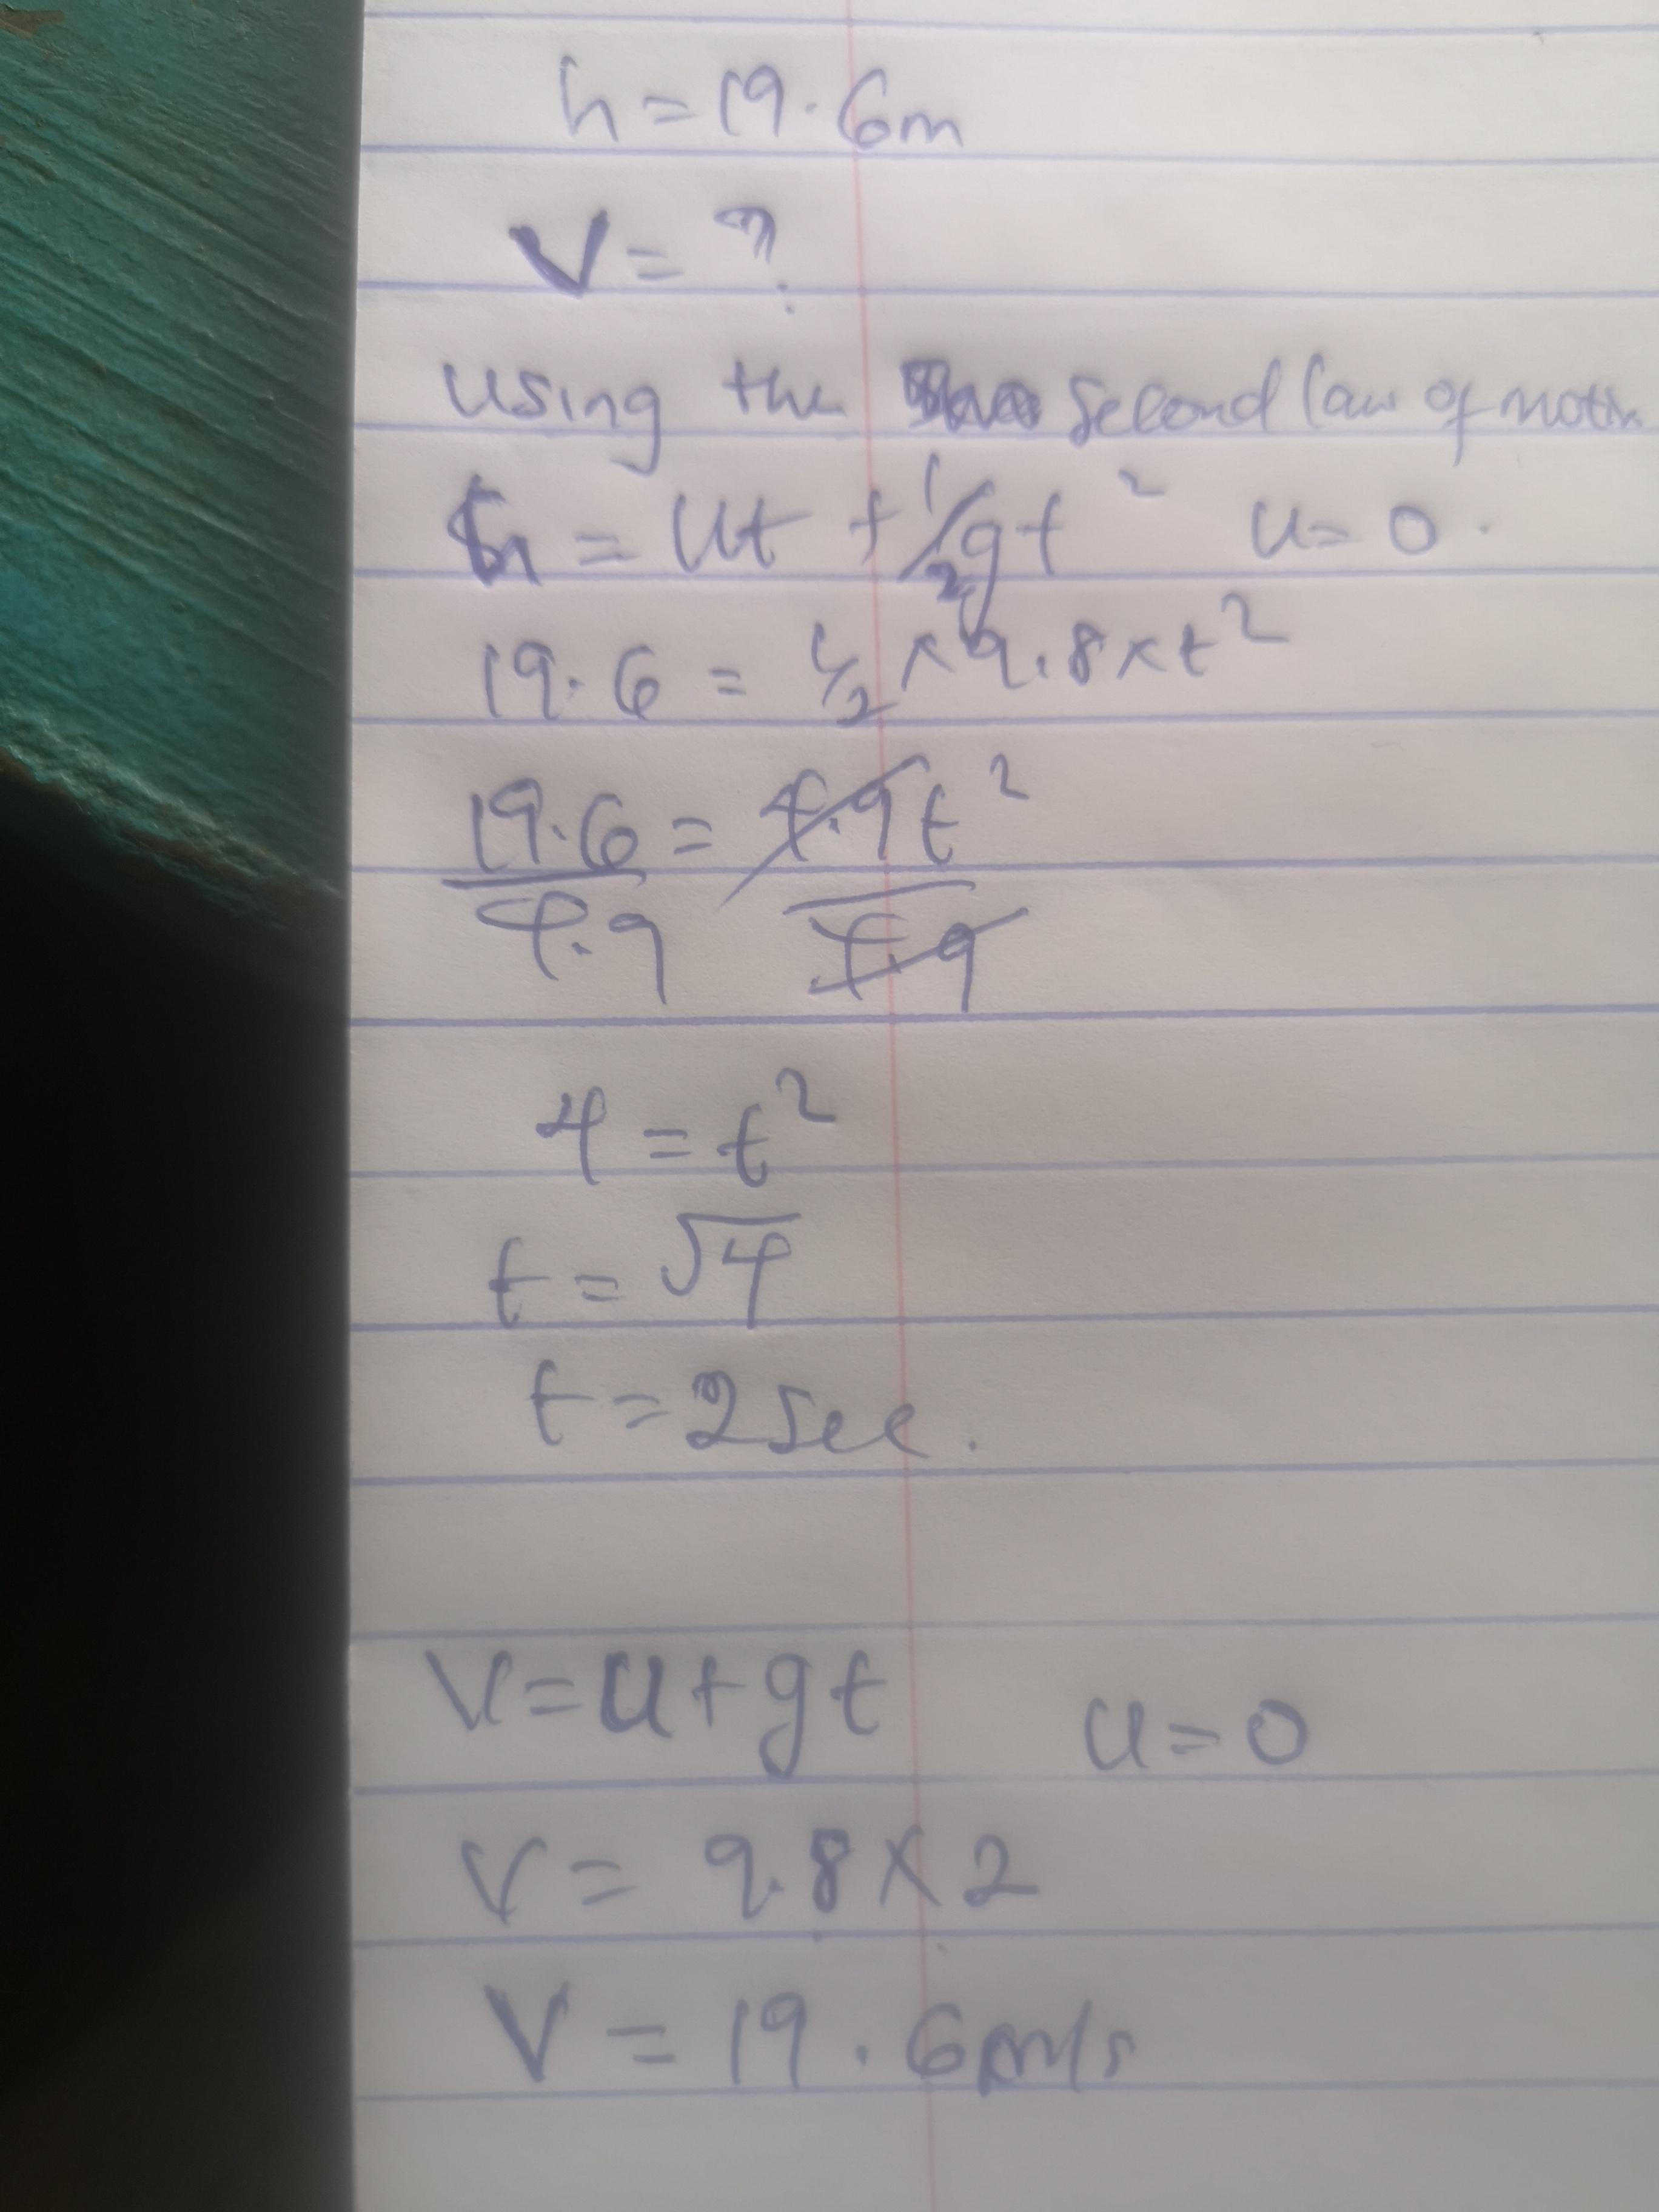 h = 19.6m
V = ?
using the second law of motn
h = ut + 1/2gt² u = 0.
19.6 = 1/2 x 9.8 x t²
19.6/4.9 = 4.9t²/4.9
4 = t²
t = √4
t = 2 sec.
V = u + gt u = 0
V = 9.8 x 2
V = 19.6m/s